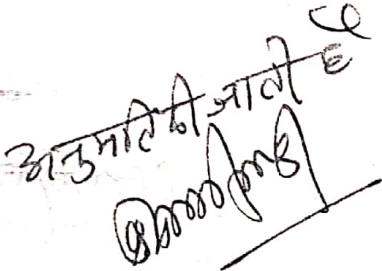 अनुमति दी जाती है